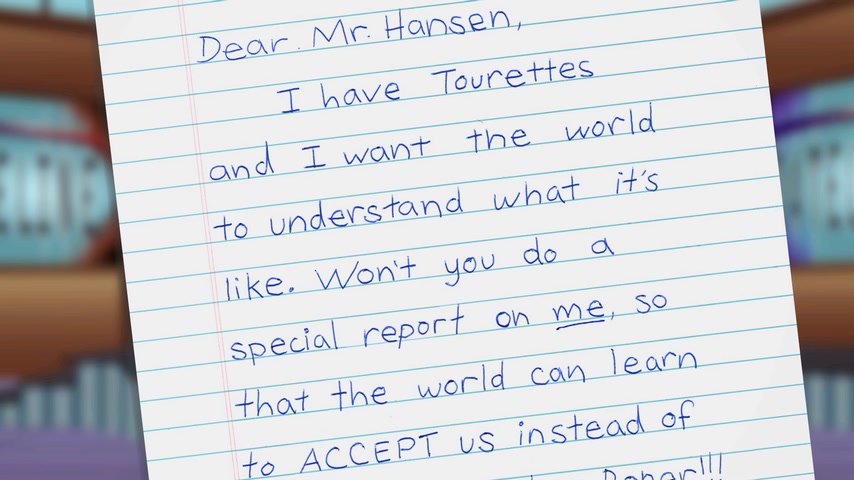 Dear. Mr. Hansen,
I have Tourettes
and I want the world
to understand what it's
like. Won't you do a
special report on me, so
that the world can learn
to ACCEPT us instead of